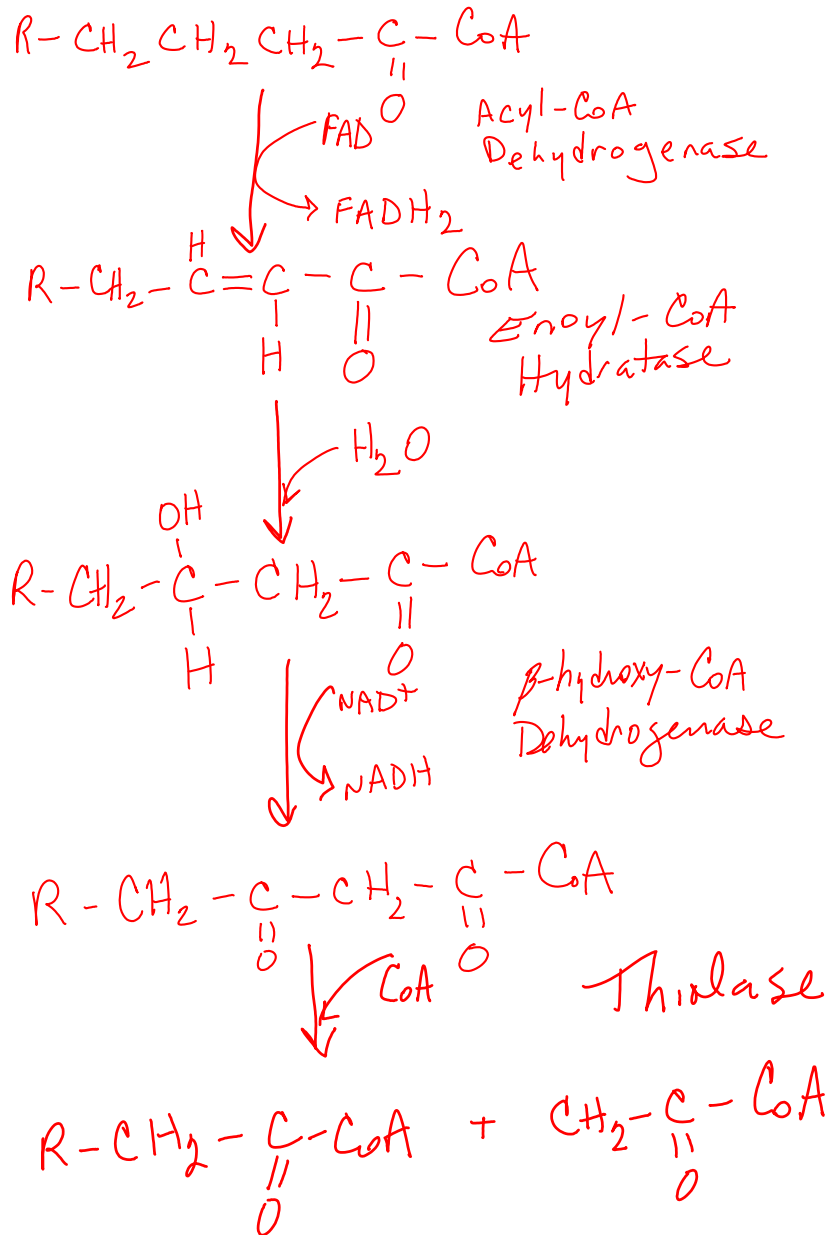 R-CH₂CH₂CH₂-C-CoA
=
O
FAD
FADH₂
Acyl-CoA
Dehydrogenase
H
R-CH₂-C=C-C-CoA
=
H O
Enoyl-CoA
Hydratase
H₂O
OH
R-CH₂-C-CH₂-C-CoA
=
H O
NAD+
NADH
β-hydroxy-CoA
Dehydrogenase
R-CH₂-C-CH₂-C-CoA
= =
O O
CoA
Thiolase
R-CH₂-C-CoA + CH₂-C-CoA
= =
O O